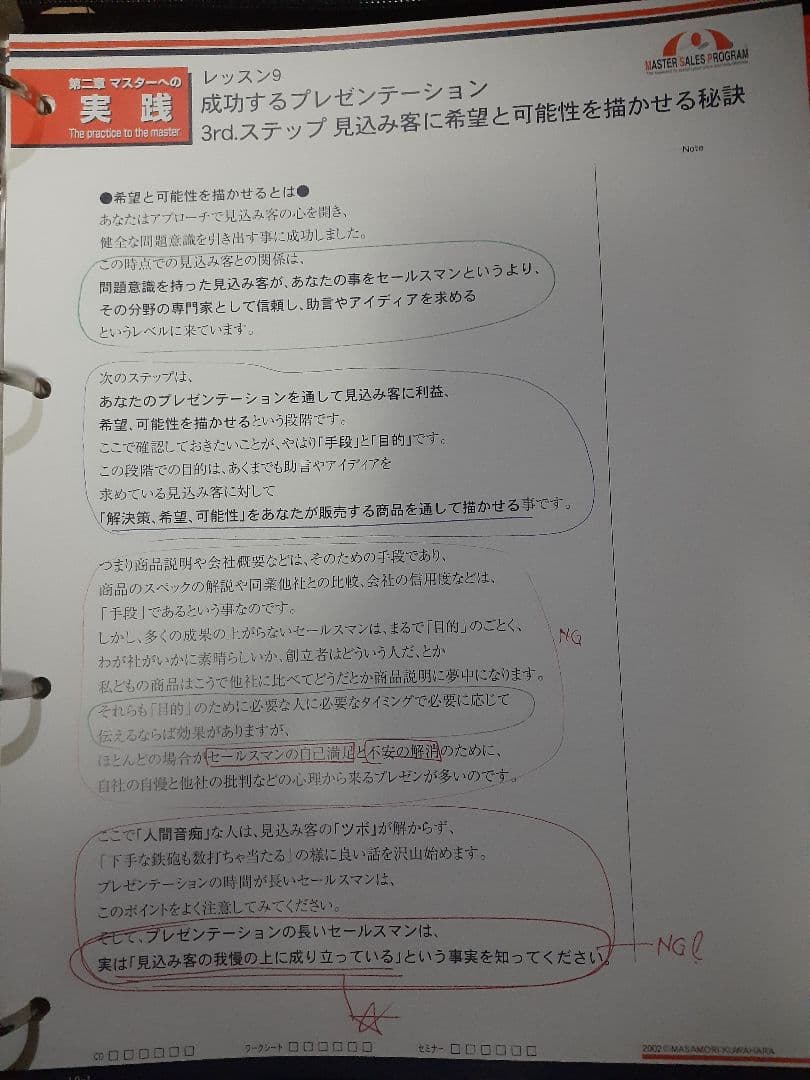 MASTER SALES PROGRAM
第二章 マスターへの
実践
The practice to the master
レッスン9
成功するプレゼンテーション
3rd.ステップ 見込み客に希望と可能性を描かせる秘訣
Note
●希望と可能性を描かせるとは●
あなたはアプローチで見込み客の心を開き、
健全な問題意識を引き出す事に成功しました。
この時点での見込み客との関係は、
問題意識を持った見込み客が、あなたの事をセールスマンというより、
その分野の専門家として信頼し、助言やアイディアを求める
というレベルに来ています。
次のステップは、
あなたのプレゼンテーションを通して見込み客に利益、
希望、可能性を描かせるという段階です。
ここで確認しておきたいことが、やはり「手段」と「目的」です。
この段階での目的は、あくまでも助言やアイディアを
求めている見込み客に対して
「解決策、希望、可能性」をあなたが販売する商品を通して描かせる事です。
つまり商品説明や会社概要などは、そのための手段であり、
商品のスペックの解説や同業他社との比較、会社の信用度などは、
「手段」であるという事なのです。
しかし、多くの成果の上がらないセールスマンは、まるで「目的」のごとく、
NG
わが社がいかに素晴らしいか、創立者はどういう人だ、とか
私どもの商品はこうで他社に比べてどうだとか商品説明に夢中になります。
それらも「目的」のために必要な人に必要なタイミングで必要に応じて
伝えるならば効果がありますが、
ほとんどの場合がセールスマンの自己満足と不安の解消のために、
自社の自慢と他社の批判などの心理から来るプレゼンが多いのです。
ここで「人間音痴」な人は、見込み客の「ツボ」が解からず、
「下手な鉄砲も数打ちゃ当たる」の様に良い話を沢山始めます。
プレゼンテーションの時間が長いセールスマンは、
このポイントをよく注意してみてください。
そして、プレゼンテーションの長いセールスマンは、
実は「見込み客の我慢の上に成り立っている」という事実を知ってください。
NG!
CD □□□□□□ ワークシート □□□□□□ セミナー □□□□□□
2002©MASAMORI KUWAHARA